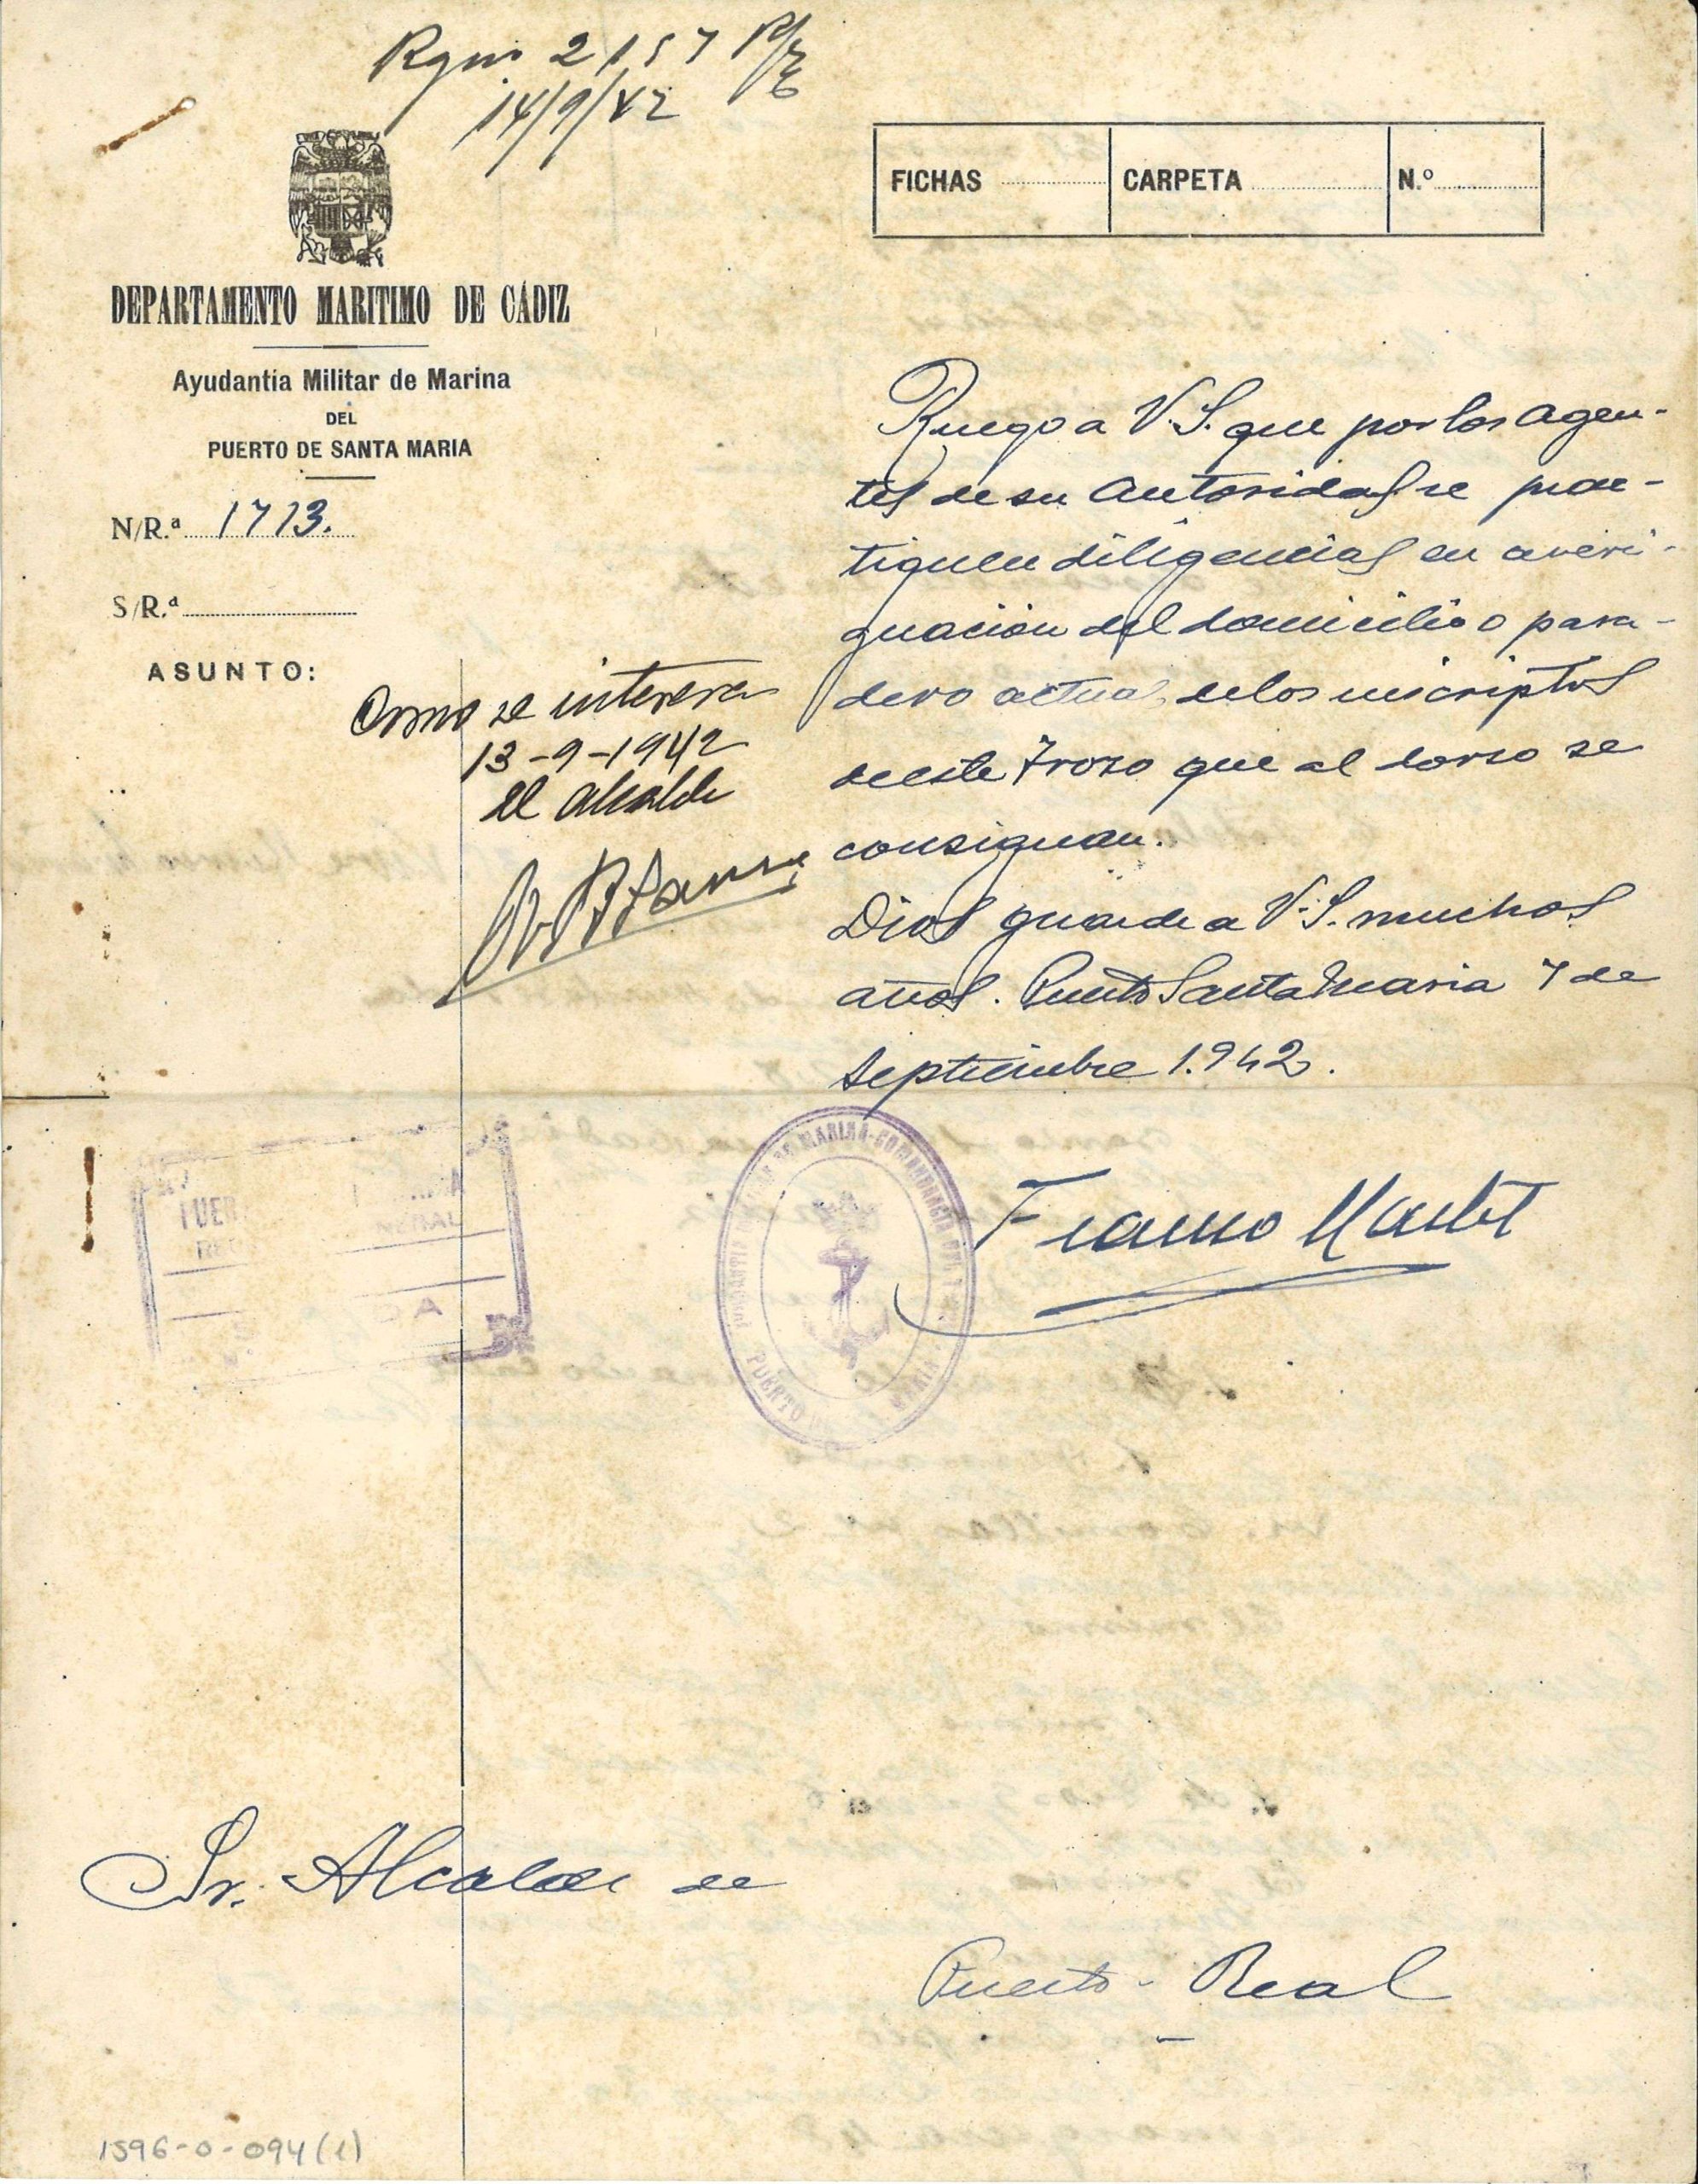 Rgnº 2157
14/9/42
FICHAS
CARPETA
N.º
DEPARTAMENTO MARITIMO DE CÁDIZ
Ayudantía Militar de Marina
DEL
PUERTO DE SANTA MARIA
N/R.ª 1713.
S/R.ª
ASUNTO:
Como se interesa
13-9-1942
El Alcalde
Ruego a V.S. que por los agen-
tes de su Autoridad se prac-
tiquen diligencias en averi-
guación del domicilio o para-
dero actual de los inscriptos
de este Trozo que al dorso se
consignan.
Dios guarde a V.S. muchos
años. Puerto Santa Maria 7 de
Septiembre 1.942.
DE MARINA-COMANDANCIA
PUERTO MARIA
Sr. Alcalde de
Puerto-Real
1596-0-094(1)